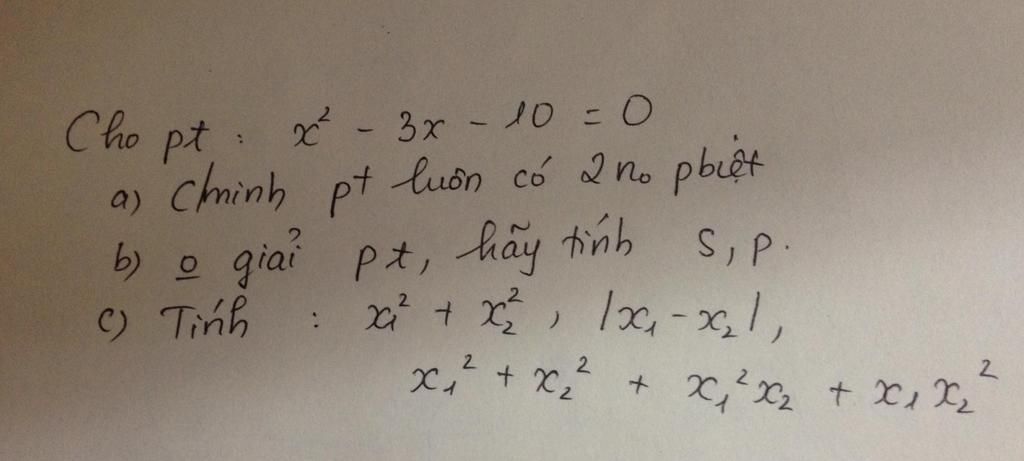 Cho pt : x² - 3x - 10 = 0
a) Cminh pt luôn có 2 no pbiệt
b) o giải pt, hãy tính S, p.
c) Tính : x₁² + x₂² , |x₁ - x₂| ,
x₁² + x₂² + x₁²x₂ + x₁x₂²